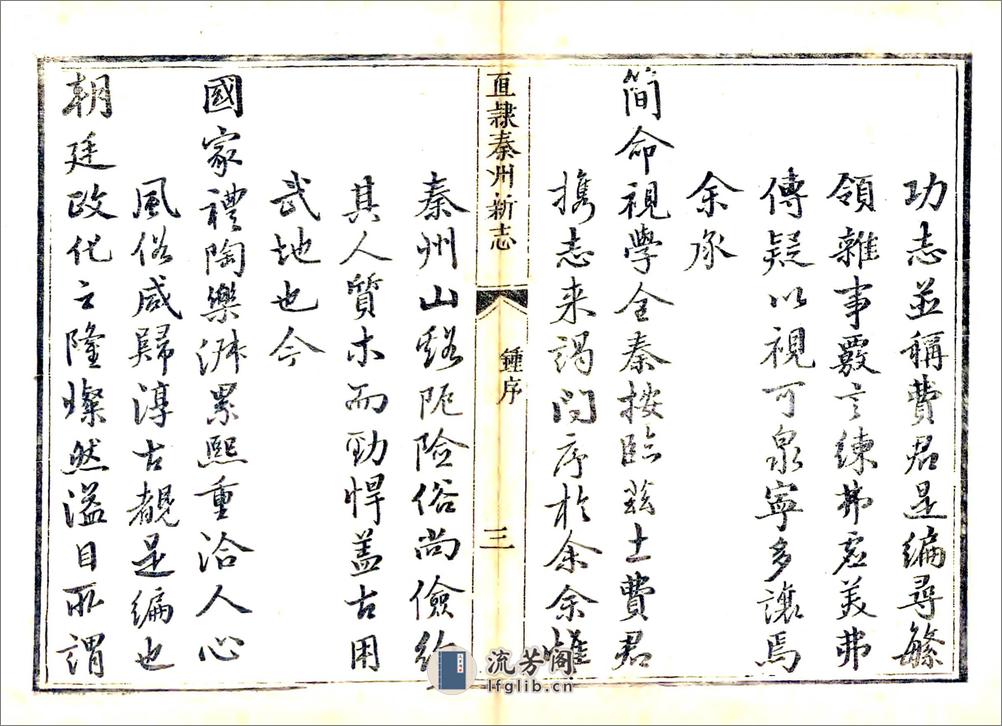 功志並稱費君是編尋繁
領雜事覈言練弗虛美弗
傳疑以視可泉寧多讓焉
余承
簡命視學全秦按臨茲土費君
携志来謁問序於余余惟
直隷秦州新志
鍾序
三
秦州山谿阨險俗尚儉約
其人質木而勁悍盖古用
武地也今
國家禮陶樂淑累熙重洽人心
風俗咸歸淳古覩是編也
朝廷政化之隆燦然溢目所謂
流芳阁
lfglib.cn